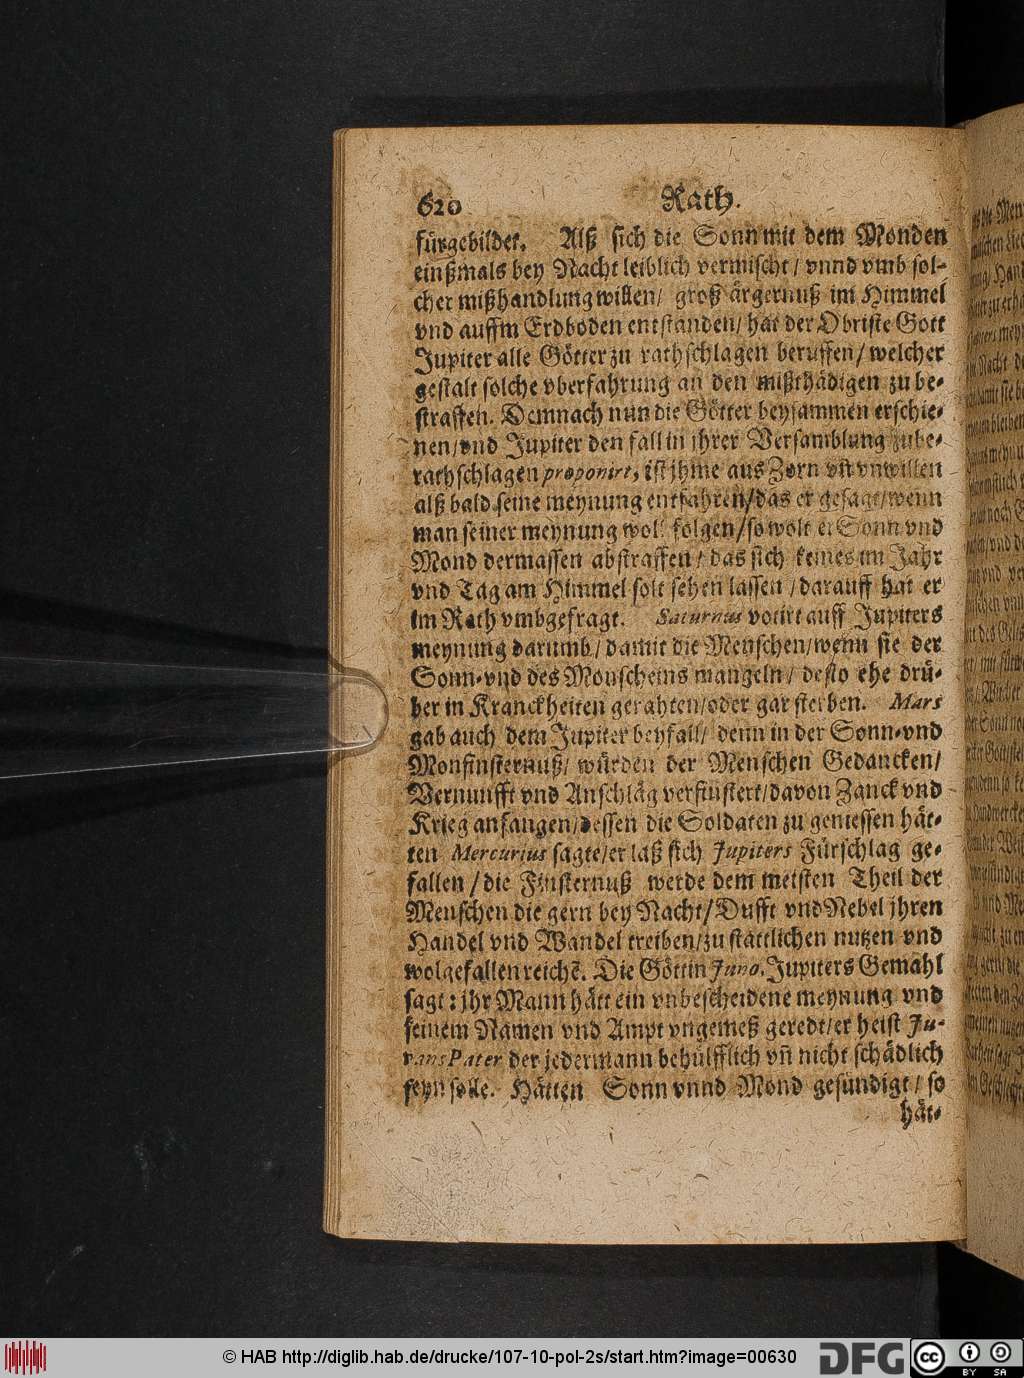 620 Rath.
fürgebildet. Alß sich die Sonn mit dem Monden
einßmals bey Nacht leiblich vermischt / vnnd vmb sol-
cher mißhandlung willen / groß ärgernuß im Himmel
vnd auffm Erdboden entstanden / hat der Obriste Gott
Jupiter alle Götter zu rathschlagen beruffen / welcher
gestalt solche vberfahrung an den mißthädigen zu be-
straffen. Demnach nun die Götter beysammen erschie-
nen / vnd Jupiter den fall in jhrer Versamblung zube-
rathschlagen proponirt, ist jhme aus Zorn vñ vnwillen
alß bald seine meynung entfahren / das er gesagt / wenn
man seiner meynung woll folgen / so wolt er Sonn vnd
Mond dermassen abstraffen / das sich keines im Jahr
vnd Tag am Himmel solt sehen lassen / darauff hat er
im Rath vmbgefragt. Saturnus votirt auff Jupiters
meynung darumb / damit die Menschen / wenn sie der
Sonn- vnd des Monscheins mangeln / desto ehe drü-
ber in Kranckheiten gerahten / oder gar sterben. Mars
gab auch dem Jupiter beyfall / denn in der Sonn- vnd
Monfinsternuß / würden der Menschen Gedancken /
Vernunfft vnd Anschläg verfinstert / davon Zanck vnd
Krieg anfangen / dessen die Soldaten zu geniessen hät-
ten Mercurius sagte / er laß sich Jupiters Fürschlag ge-
fallen / die Finsternuß werde dem meisten Theil der
Menschen die gern bey Nacht / Dufft vnd Nebel jhren
Handel vnd Wandel treiben / zu stattlichen nutzen vnd
wolgefallen reichẽ. Die Göttin Juno, Jupiters Gemahl
sagt : jhr Mann hätt ein vnbescheidene meynung vnd
seinem Namen vnd Ampt vngemeß geredt / er heist Ju-
vans Pater der jedermann behülfflich vñ nicht schädlich
seyn solle. Hätten Sonn vnnd Mond gesündigt / so
hät-
© HAB http://diglib.hab.de/drucke/107-10-pol-2s/start.htm?image=00630
DFG
cc BY SA